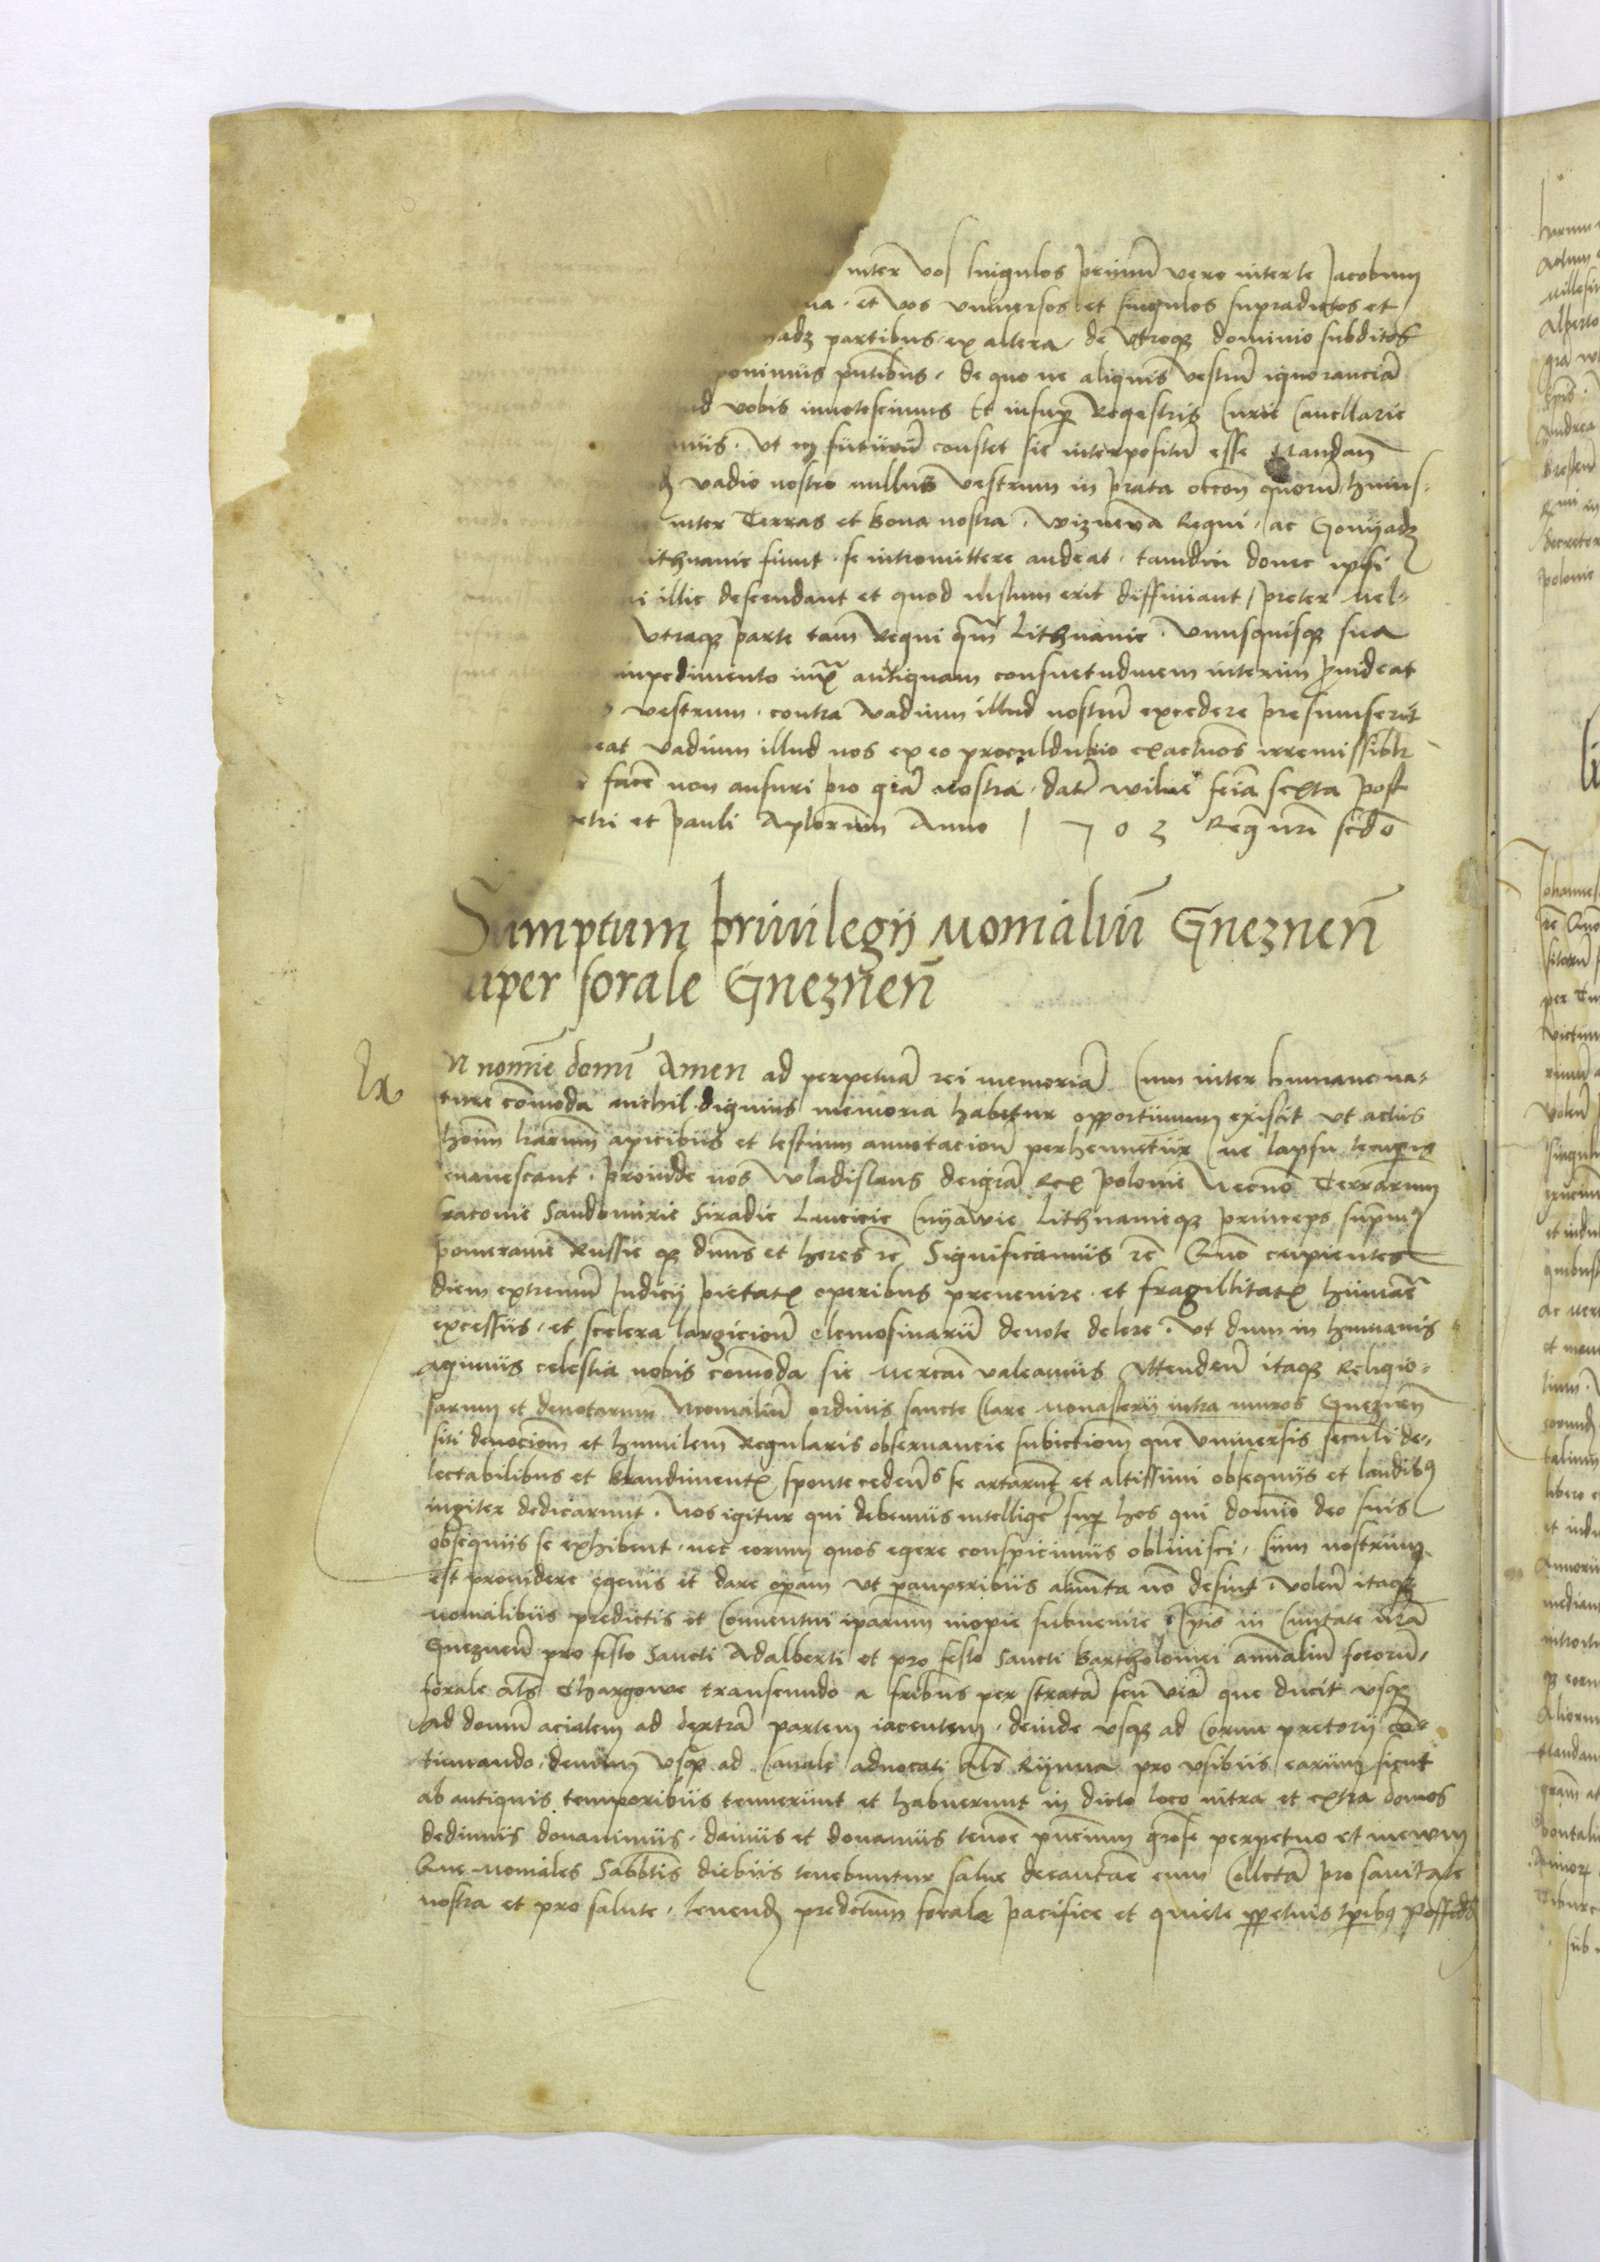 inter vos singulos primum vero inter te Jacobum
na. et vos universos et singulos supradictos et
nadz partibus. ex altera. de utroqz dominio subditos
ponimus pntibus. de quo ne aliquis vestrum ignoranciam
ud vobis innotescimus Et insuper Regestris Curie Cancellarie
mus. ut in futurum constet sic interpositum esse Mandan
vadio nostro nullus vestrum in prata occon quorum huius-
inter Terras et bona nostra. wiznena Regni. ac Gonyadz
ithuanie fiunt. se intromittere audeat. tamdiu donec ipsi
ni illic descendant et quod iustum erit diffiniant / preter mel-
utraqz parte tam Regni qm Lithuanie. Unusquisqz sua
impedimento iux antiquam consuetudinem interim provideat
vestrum. contra vadium illud nostrum excedere presumserit
eat vadium illud nos ex eo proculdubio exacturos irremissiblr
facere non ausuri pro gra nostra. dat wilne feria sexta post
etri et pauli Aplorum Anno 1 7 0 3 Regni nri scdo
Sumptum privilegij Monialium Gneznen
uper forale Gneznen
n nomie domi Amen ad perpetua rei memoria Cum inter humane na-
ture comoda nichil dignius memoria habetur opportunum existit ut actus
hoim lrarum apicibus et testium annotacione perhennetur ne lapsu temporis
evanescant. proinde nos Wladislaus dei gra Rex polonie Necno Terrarum
Cracovie Sandomirie Siradie Lancicie Cuyawie Lithuanieqz princeps supmus
pomeranie Russie qz dnus et heres rc Significamus rc Quo cupientes
diem extremum Judicij pietatis operibus prevenire. et fragillitatis humae
excessus. et scelera largicione elemosinarum devote delere. Ut dum in humanis
agimus celestia nobis comoda sic mercari valeamus Attenden itaqz Religio-
sarum et devotarum Monialium ordinis sancte Clare Monasterij intra muros Gneznen
siti devociom et humilem Regularis observancie subiectiom que universis seculi de-
lectabilibus et blandimentis sponte cedens se artarunt et altissimi obsequijs et laudibus
iugiter dedicarunt. Nos igitur qui debemus intelligere super hos qui domio deo suis
obsequiis se exhibent. nec eorum quos egere conspicimus oblivisci. cum nostrum
est providere egenis et dare opam ut pauperibus alimta no desint. volen itaqz
monialibus predictis et Conventui iparum inopie subvenire Ipis in Civitate nra
Gneznen pro festo Sancti Adalberti et pro festo Sancti Bartholomei annalium fororum.
forale als Thargowe transeundo a fribus per strata seu via que ducit usqz
ad domum acialem ad dextra partem iacentem. deinde usqz ad Cornu pretorij con-
tinuando. demum usqz ad Canale advocati als Rynna pro usibus earum sicut
ab antiquis temporibus tenuerunt et habuerunt in dicto loco intra et extra domos
dedimus donavimus. damus et donamus tenore pncium grose perpetuo et in evum
Que moniales Sabbtis diebus tenebuntur salve decantare cum Collecta pro sanitate
nostra et pro salute. tenend predictum forale pacifice et quiete ppetuis tpibus possided